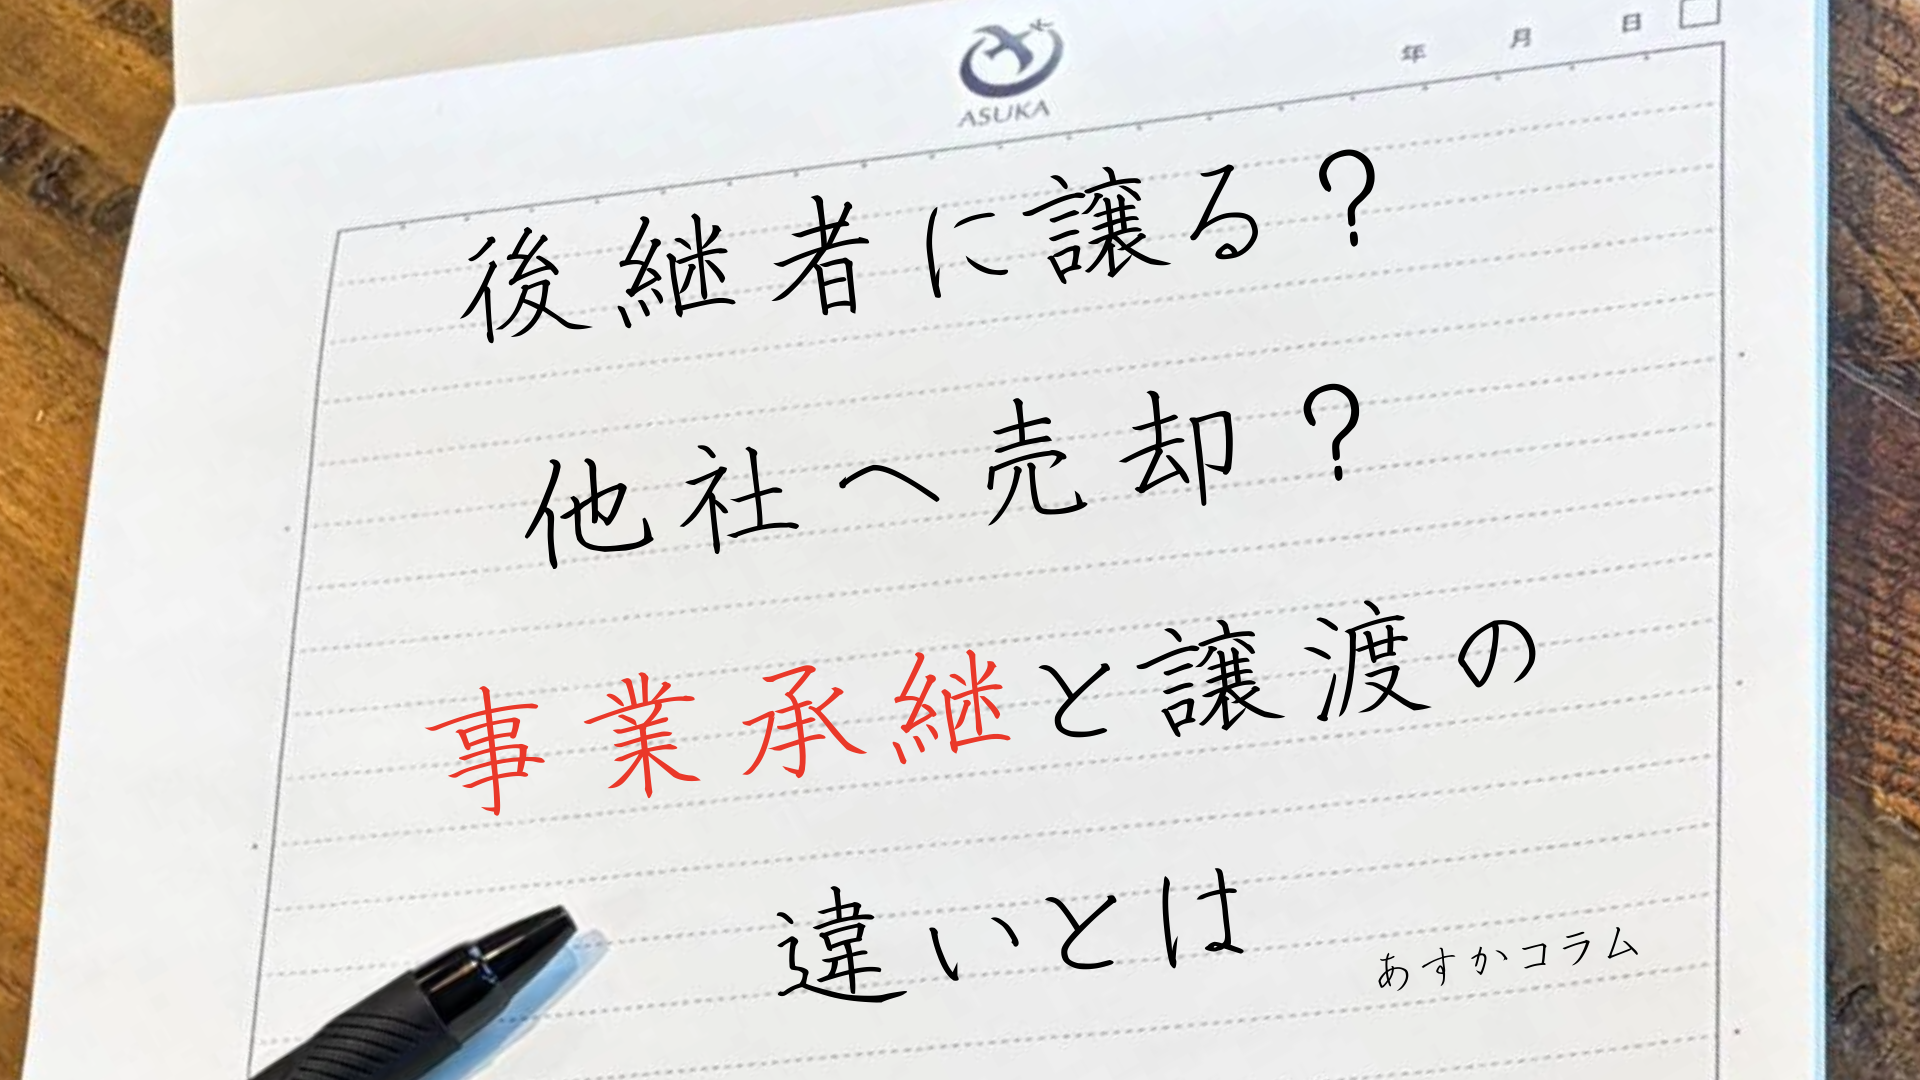 ASUKA
年 月 日
後継者に譲る？
他社へ売却？
事業承継と譲渡の
違いとは
あすかコラム